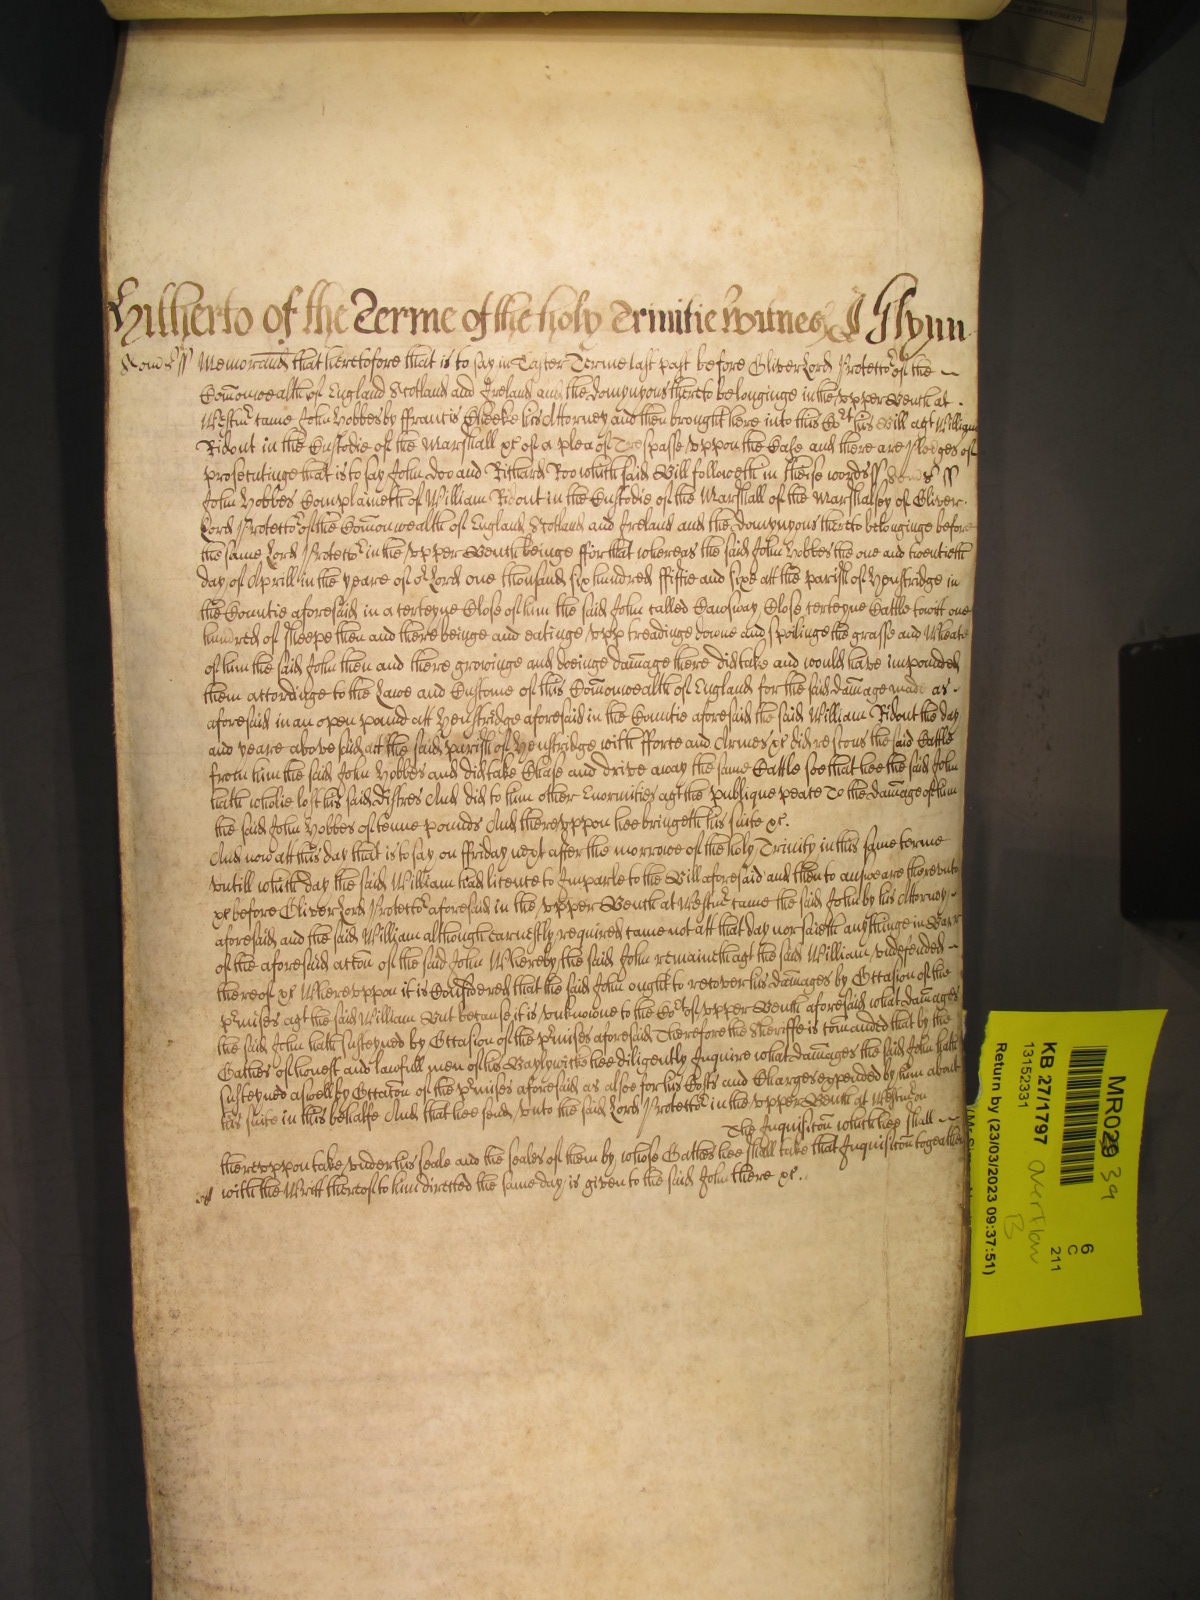 Hitherto of the Terme of the holy Trinitie Witnes J Glynn
Som~s ss Memorand that heretofore that is to say in Easter Terme last past before Oliver Lord Protector of the
Com̄onwealth of England Scotland and Ireland and the domynyons thereto belonginge in the vpper Bench at
Westmr came John Hobbes by ffrancis Cheeke his Attorney and then brought here into this Cort his Bill agt William
Ridout in the Custodie of the Marshall &c of a plea of Trespasse vppon the Case and there are pledges of
prosecutinge that is to say John Doo and Richard Roo which said Bill followeth in theise words ss Som~s ss
John Hobbes Complaineth of William Ridout in the Custodie of the Marshall of the Marshalsey of Oliver
Lord Protector of the Com̄onwealth of England Scotland and Ireland and the domynyons thereto belonginge before
the same Lord Protector in the vpper Bench beinge ffor that whereas the said John Hobbes the one and twentieth
day of Aprill in the yeare of or Lord one thousand six hundred ffiftie and sixe att the parish of Henstridge in
the Countie aforesaid in a certeyne Close of him the said John called Close certeyne Cattle towitt one
hundred of sheepe then and there beinge and eatinge vpp treadinge downe and spoilinge the grasse and Wheate
of him the said John then and there growinge and doeinge dam̄age there did take and would have impounded
them accordinge to the Lawe and Custome of this Com̄onwealth of England for the said dam̄age made as
aforesaid in an open pound att Henstridge aforesaid in the Countie aforesaid the said William Ridout the day
and yeare above said att the said parish of Henstridge with fforce and Armes &c did rescous the said Cattle
from him the said John Hobbes and did take Chase and drive away the same Cattle soe that hee the said John
hath wholie lost his said Distres And did to him other Enormities agt the publique peace To the dam̄age of him
the said John Hobbes of tenne pounds And therevppon hee bringeth his suite &c.
And now att this day that is to say on ffriday next after the morrowe of the holy Trinity in this same terme
vntill which day the said William had licence to Imparle to the Bill aforesaid and then to answeare therevnto
&c before Oliver Lord Protector aforesaid in the vpper Bench at Westmr came the said John by his Attorney
aforesaid and the said William although earnestly required came not att that day nor saieth any thinge in Barr
of the aforesaid accon̄ of the said John Whereby the said John remaineth agt the said William vndefended
thereof &c Wherevppon it is Considered that the said John ought to recover his dam̄ages by Occasion of the
pr̄mises agt the said William But because it is vnknowne to the Cort of vpper Bench aforesaid what dam̄ages
the said John hath susteyned by Occasion of the pr̄mises aforesaid Therefore the Sheriffe is com̄anded that by the
Oathes of honest and lawfull men of his Baylywicke hee diligently Inquire what dam̄ages the said John hath
susteyned aswell by Occacōn of the pr̄mises aforesaid as alsoe for his Costs and Charges expended by him about
his suite in this behalfe And that hee send vnto the said Lord Protector in the vpper Bench at Westmr on
The Inquisicōn which hee shall
therevppon take vnder his seale and the seales of them by whose Oathes hee shall take that Inquisicōn together
with the Writt thereof to him directed the same day is given to the said John there &c.
MR029 39
KB 27/1797
13152331
Overflow
B
6
C
211
Return by (23/03/2023 09:37:51)